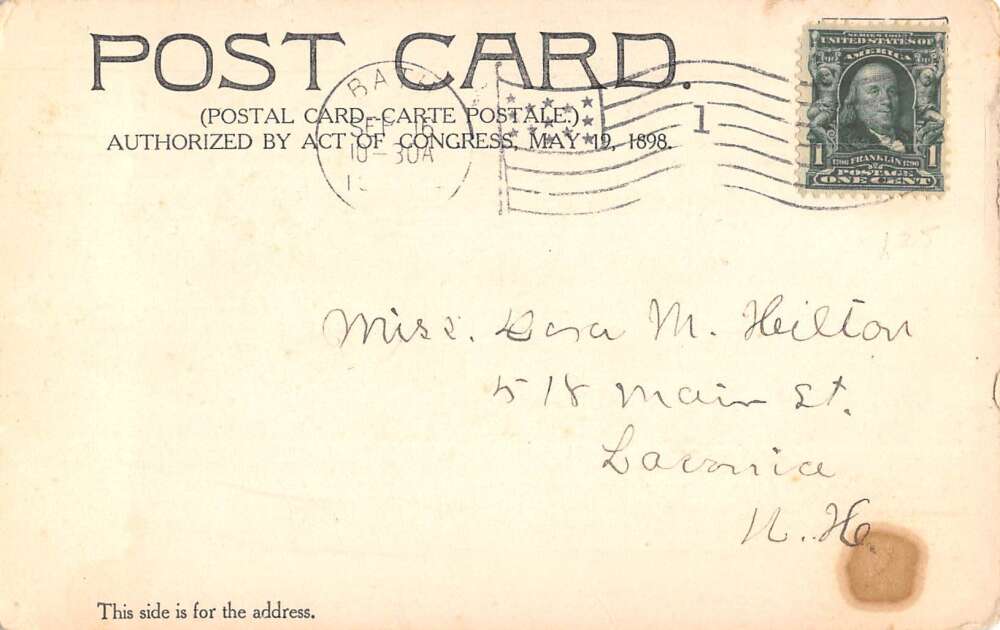 POST CARD.
(POSTAL CARD-CARTE POSTALE.)
AUTHORIZED BY ACT OF CONGRESS, MAY 19, 1898.
BATH
SEP 16
10-30A
1
SERIES 1902
UNITED STATES OF
AMERICA
1 FRANKLIN 1
1706 1790
POSTAGE
ONE CENT
125
Miss. Dora M. Heilton
518 Main St.
Laconia
N. H.
This side is for the address.